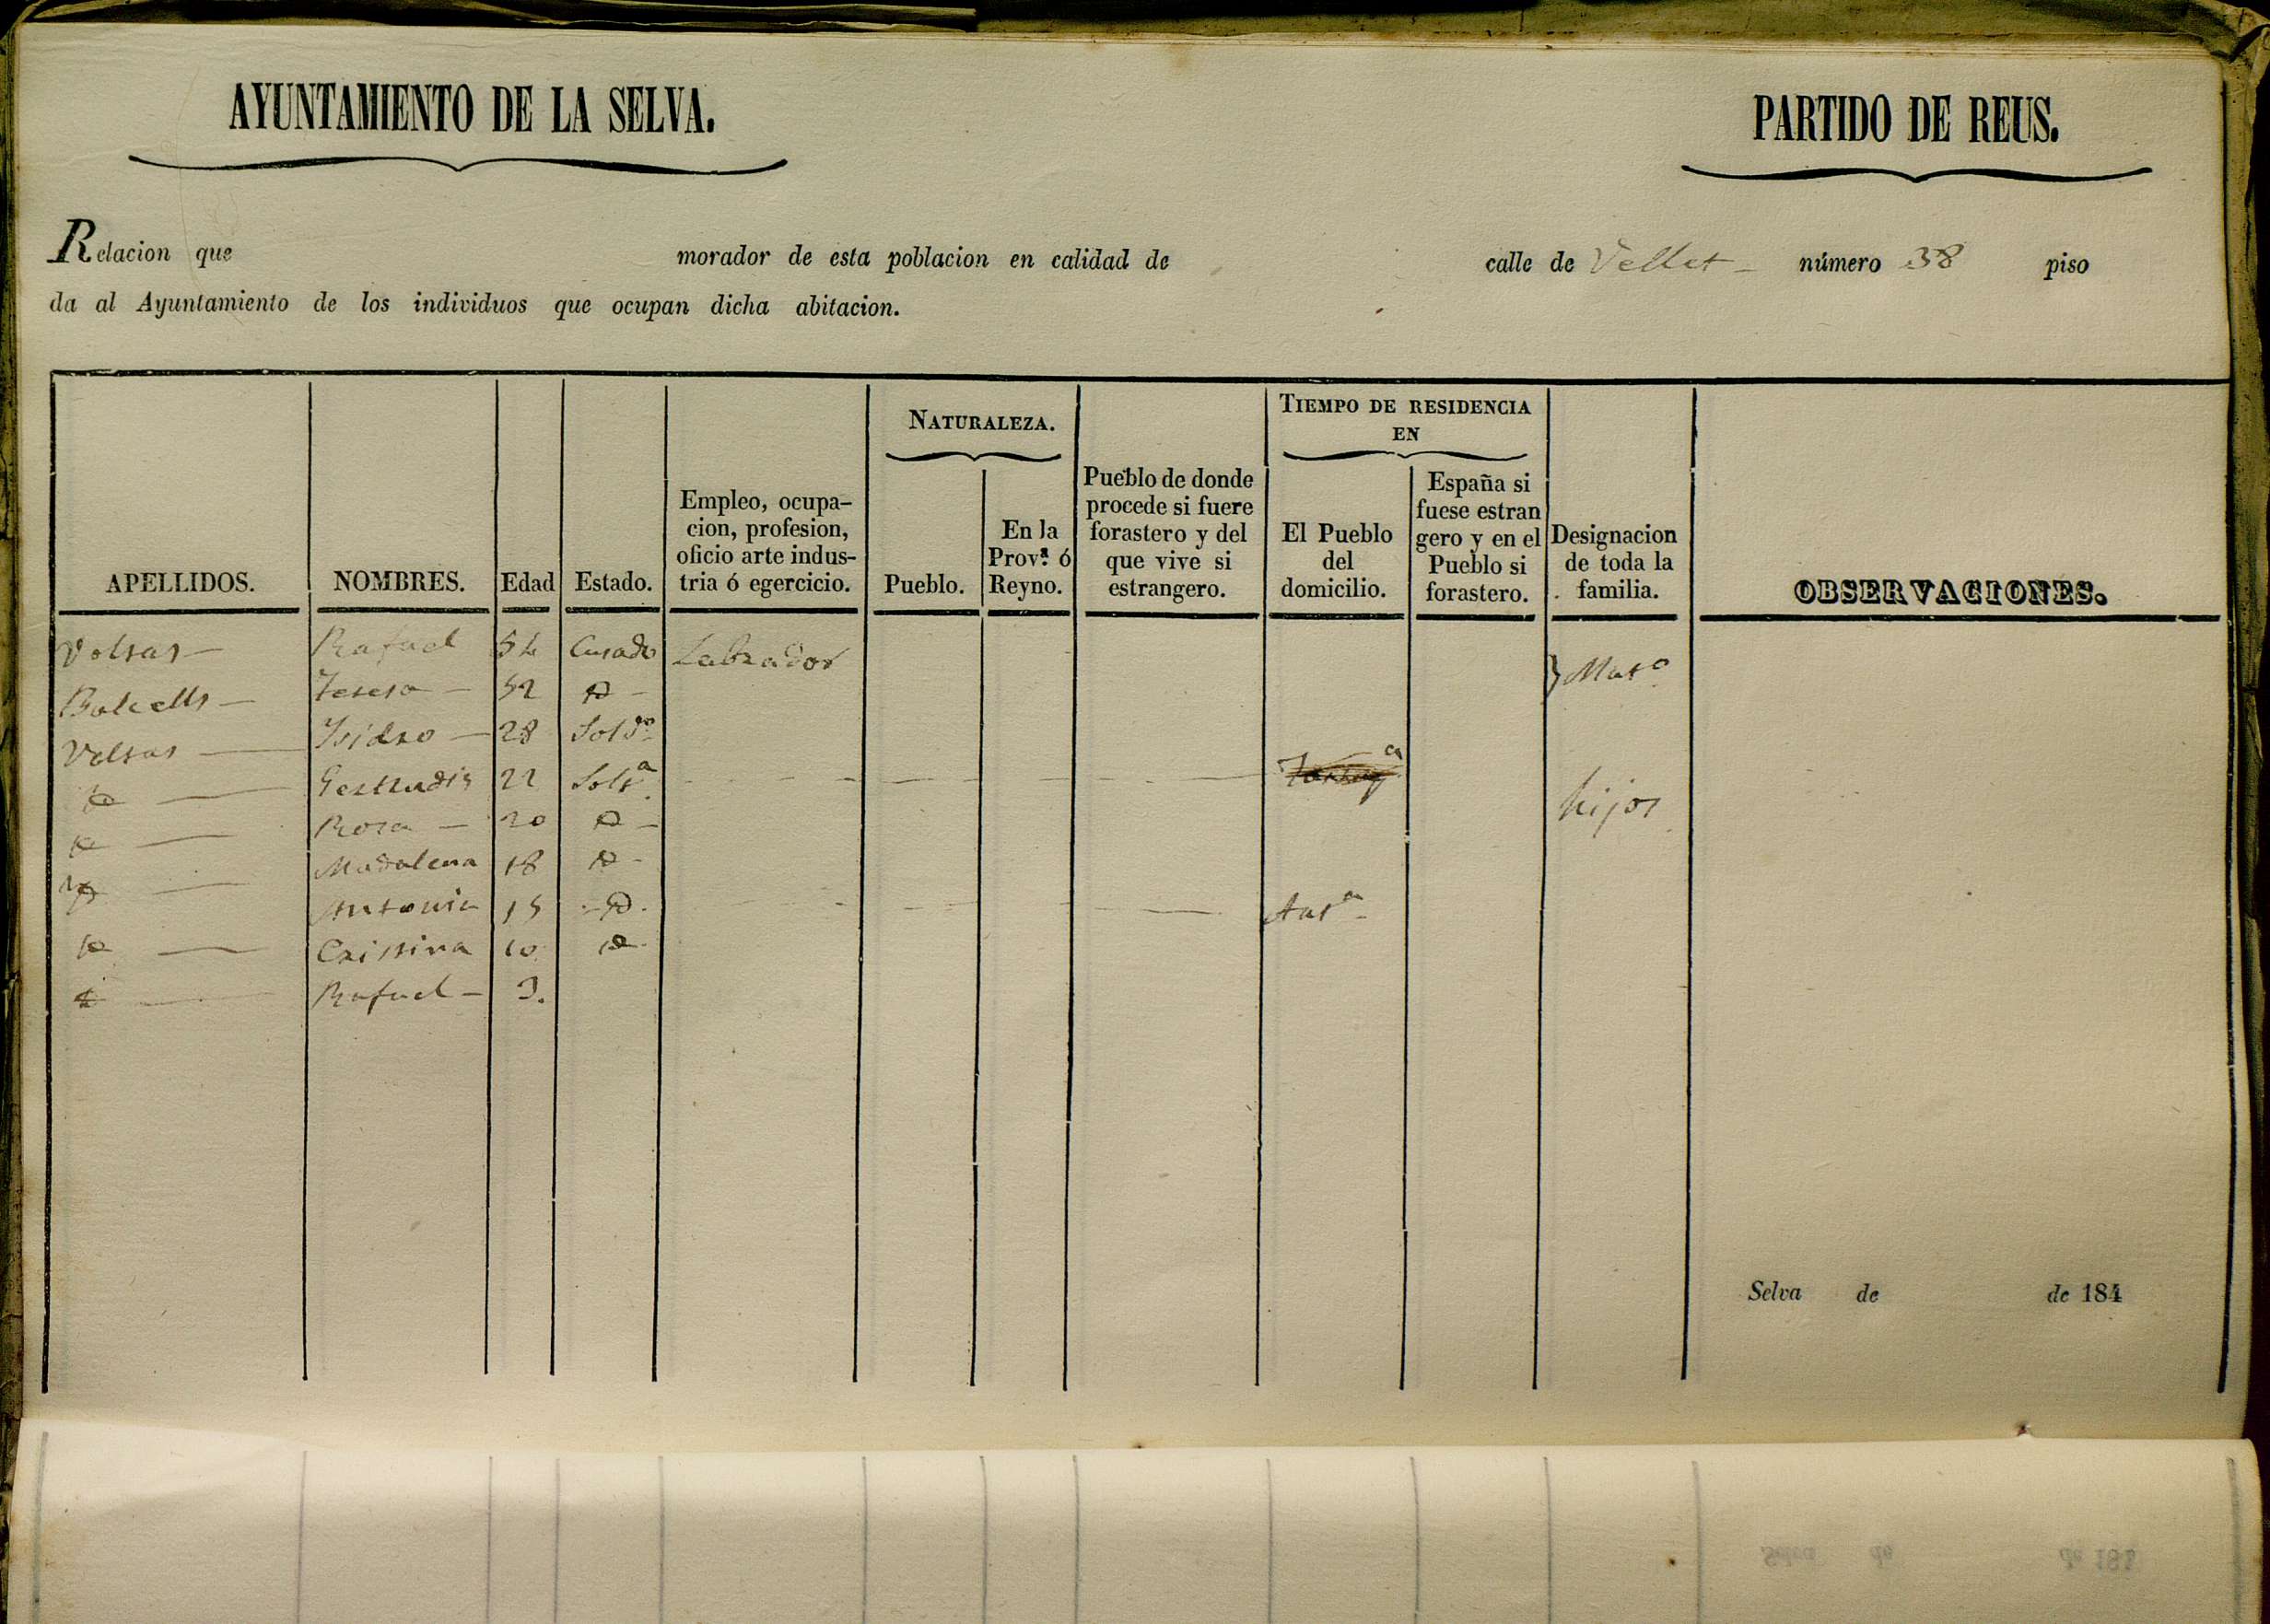 AYUNTAMIENTO DE LA SELVA. PARTIDO DE REUS.
Relacion que morador de esta poblacion en calidad de calle de Vellet número 38 piso
da al Ayuntamiento de los individuos que ocupan dicha abitacion.
APELLIDOS. NOMBRES. Edad Estado. Empleo, ocupa-cion, profesion, oficio arte indus-tria ó egercicio. NATURALEZA. Pueblo. En la Prov.ª ó Reyno. Pueblo de donde procede si fuere forastero y del que vive si estrangero. TIEMPO DE RESIDENCIA EN El Pueblo del domicilio. España si fuese estran gero y en el Pueblo si forastero. Designacion de toda la familia. OBSERVACIONES.
Volsas Rafael 54 Casado Labrador
Balcells Teresa 52 Mat.º
Volsas Isidro 28 Solt.º
Gertrudis 22 Solt.ª hijos
Rosa 20
Madalena 18
Antonia 15
Cristina 10
Rafael 3.
Selva de de 184